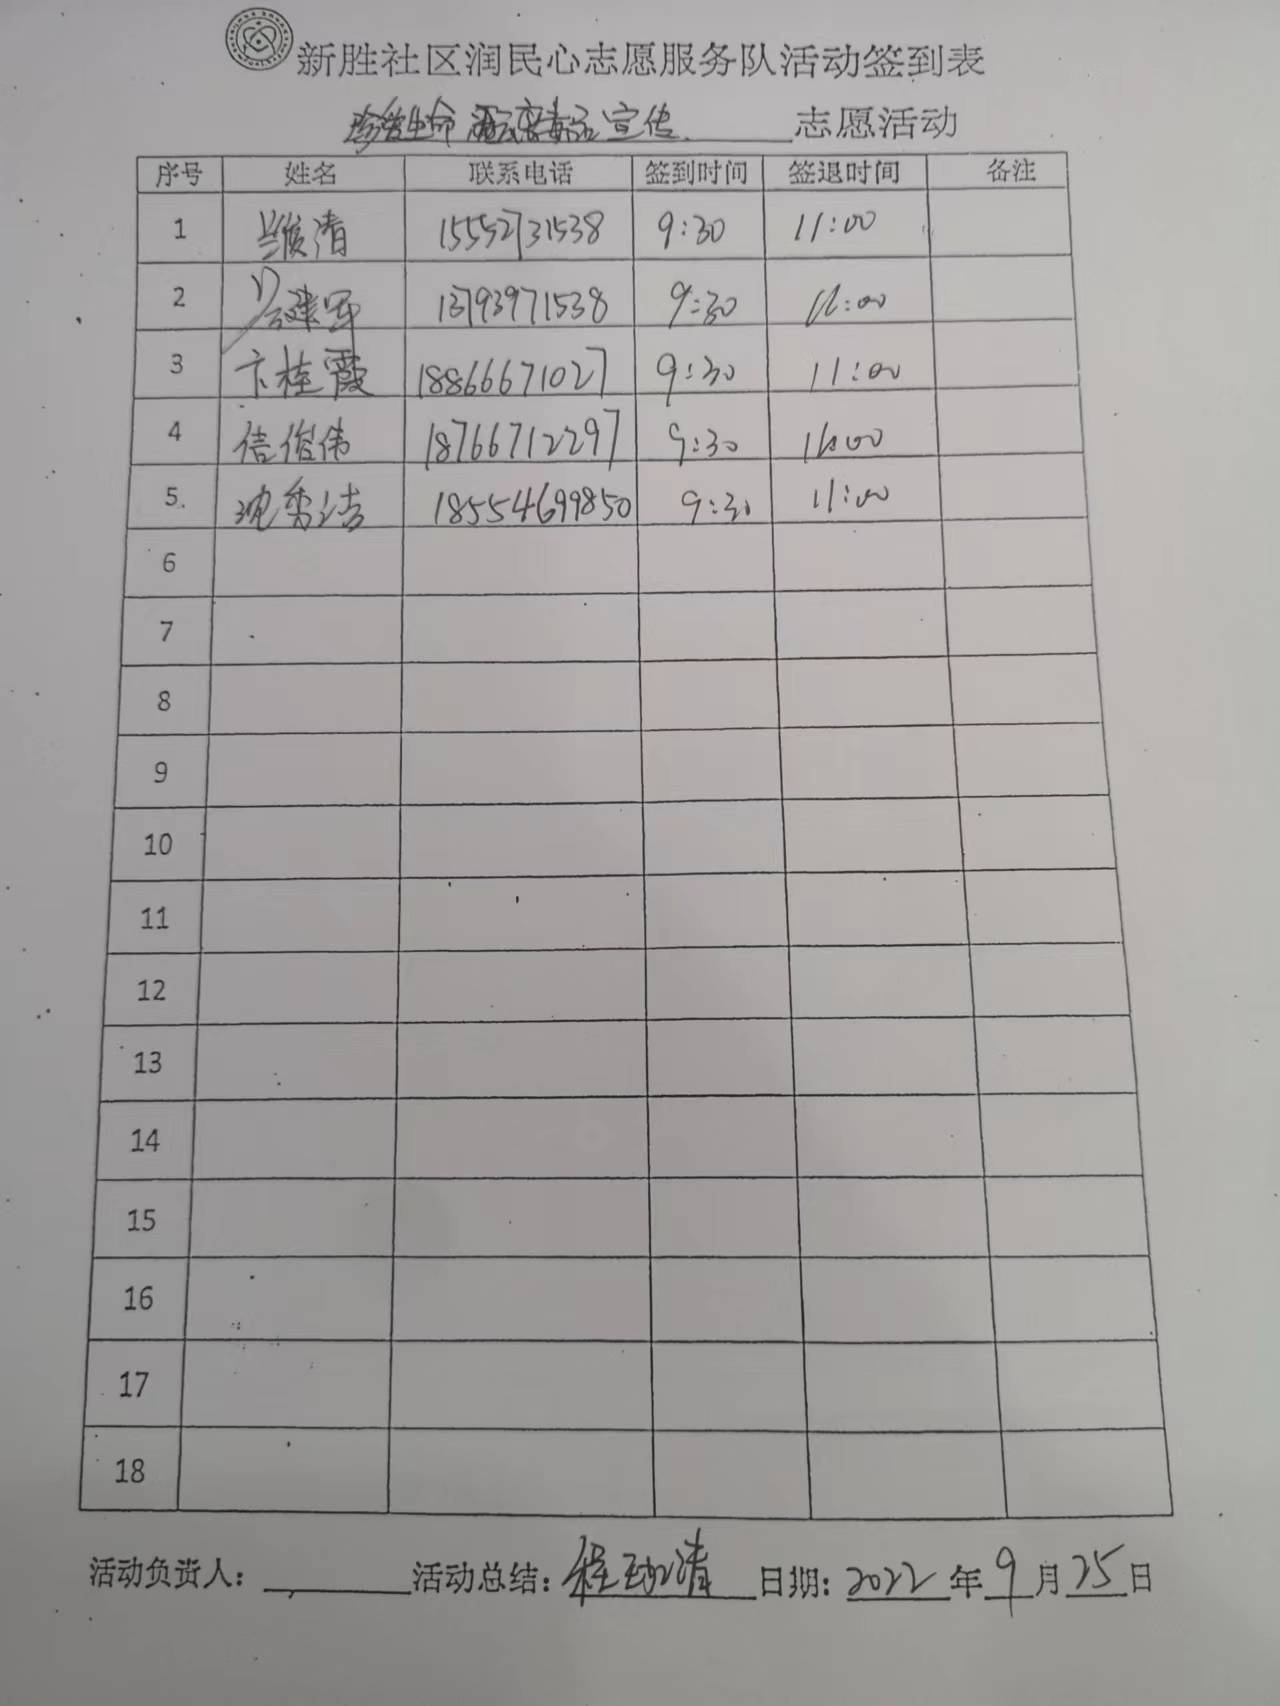 新胜社区润民心志愿服务队活动签到表
珍爱生命 远离毒品宣传 志愿活动
序号 姓名 联系电话 签到时间 签退时间 备注
1 清 15552731538 9:30 11:00
2 建军 13793971538 9:30 11:00
3 卞桂霞 18866671027 9:30 11:00
4 信俊伟 18766712297 9:30 11:00
5 沈秀洁 18554699850 9:30 11:00
6
7
8
9
10
11
12
13
14
15
16
17
18
活动负责人: 活动总结: 程 清 日期: 2022 年 9 月 25 日